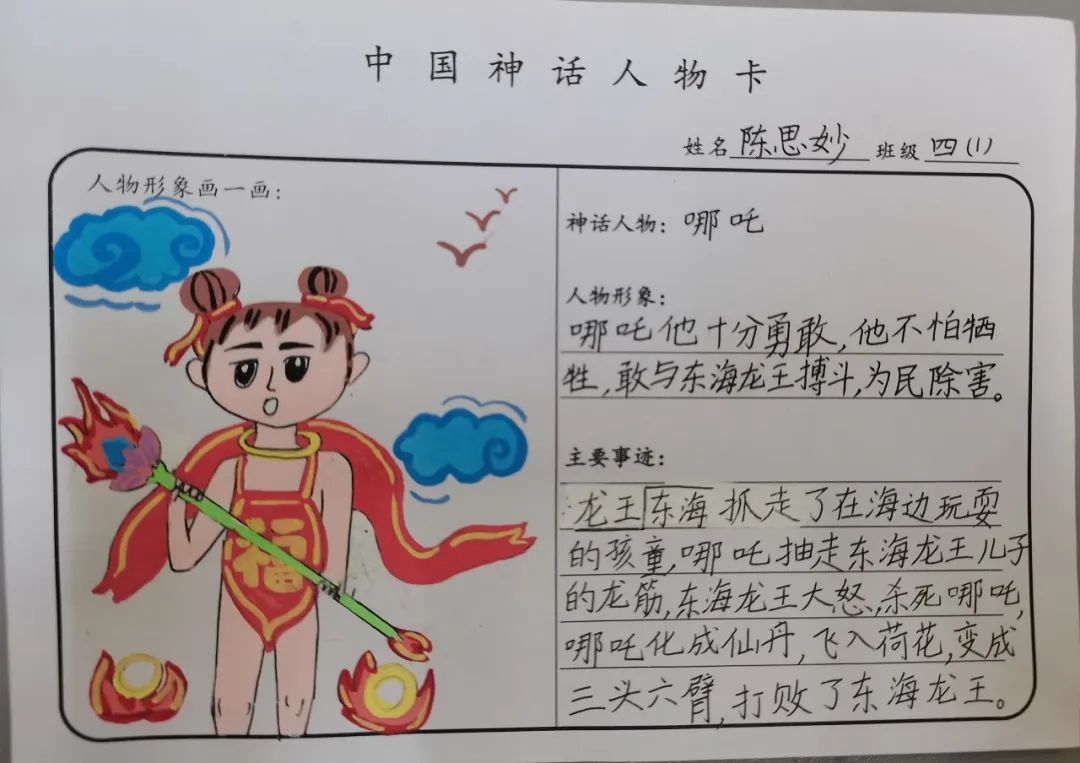 中国神话人物卡
姓名 陈思妙 班级 四(1)
人物形象画一画：
福
神话人物： 哪吒
人物形象：
哪吒他十分勇敢，他不怕牺
牲，敢与东海龙王搏斗，为民除害。
主要事迹：
龙王东海抓走了在海边玩耍
的孩童，哪吒抽走东海龙王儿子
的龙筋，东海龙王大怒，杀死哪吒，
哪吒化成仙丹，飞入荷花，变成
三头六臂，打败了东海龙王。